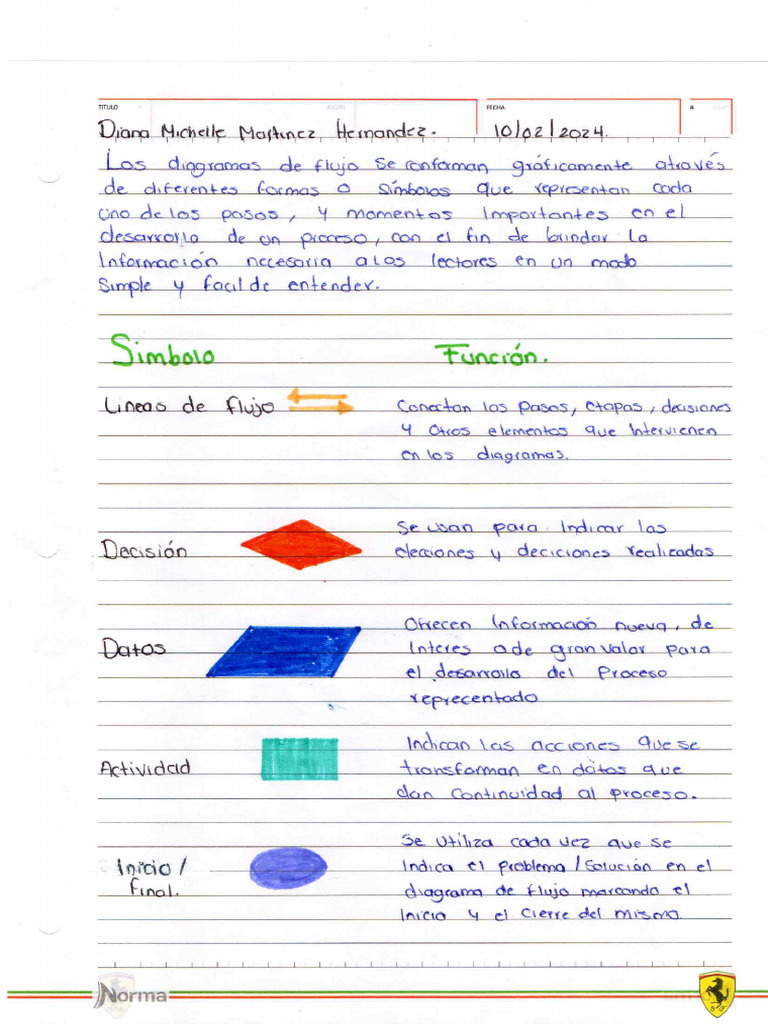 TITULO FECHA
Diana Michelle Martinez Hernandez. 10/02/2024.
Los diagramas de flujo se conforman gráficamente através
de diferentes formas o símbolos que representan cada
uno de los pasos, y momentos importantes en el
desarrollo de un proceso, con el fin de brindar la
Información necesaria a los lectores en un modo
simple y facil de entender.
Simbolo Función.
Lineas de flujo Conectan los pasos, etapas, decisiones
y otros elementos que Intervienen
en los diagramas.
Se usan para Indicar las
Decisión elecciones y deciciones realizadas
Ofrecen Información nueva, de
Datos Interes o de gran valor para
el desarrollo del Proceso
reprecentado
Indican las acciones que se
Actividad transforman en datos que
dan Continuidad al proceso.
Se utiliza cada vez que se
Inicio / Indica el problema / Solución en el
final. diagrama de flujo marcando el
Inicio y el cierre del mismo.
Norma